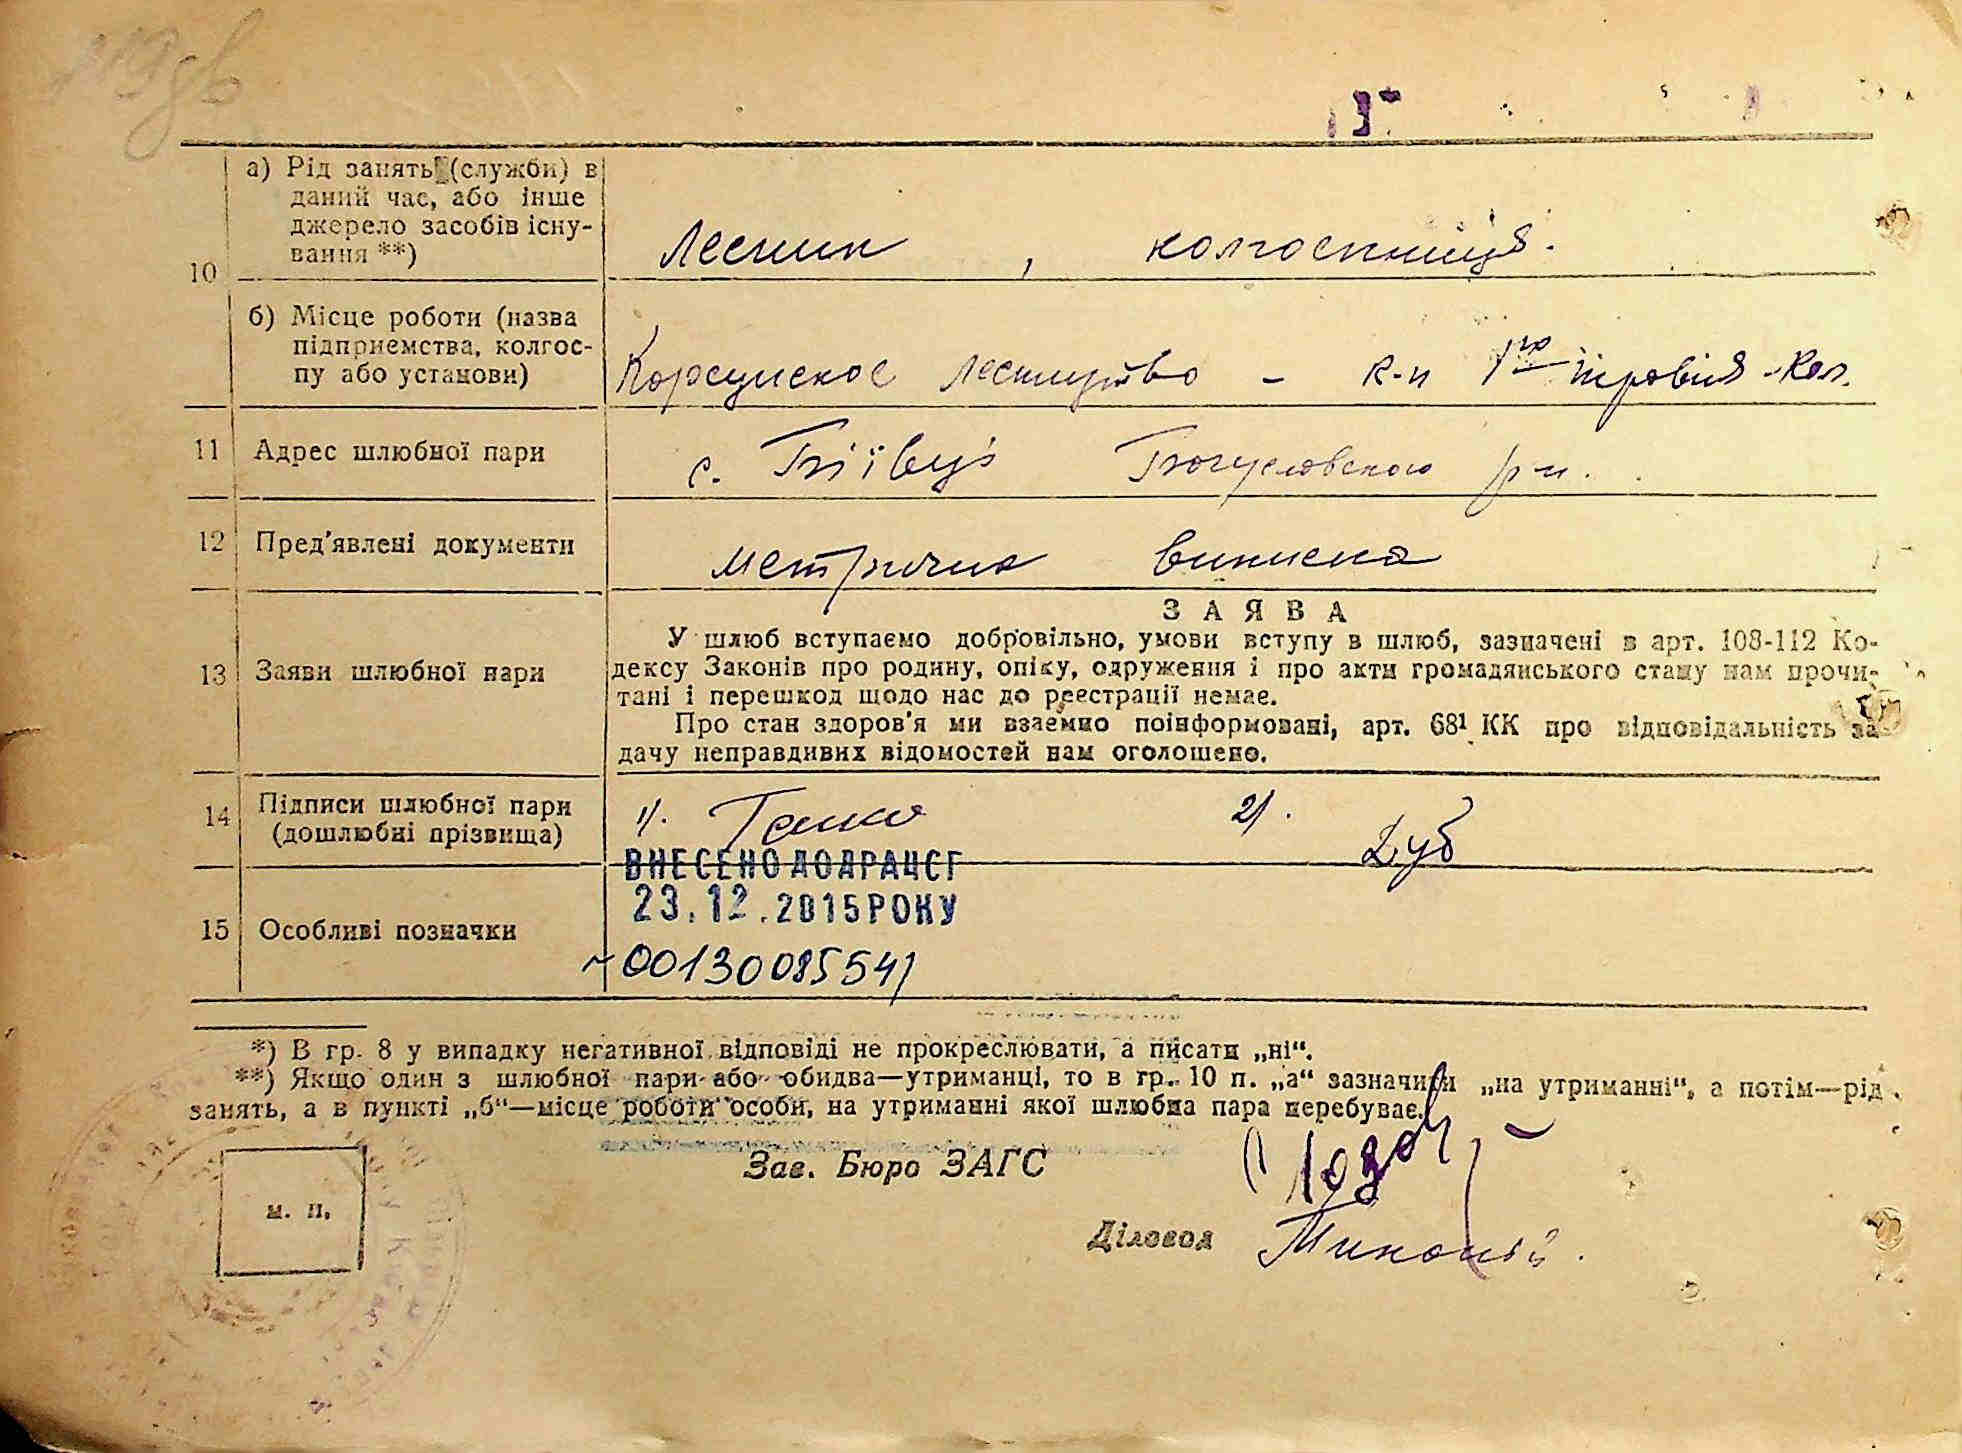 10
а) Рід занять (служби) в
даний час, або інше
джерело засобів існу-
вання **)
Лесник , колгоспниця.
б) Місце роботи (назва
підприємства, колгос-
пу або установи)
Корсунское лесництво - к-п 1го травня
11 Адрес шлюбної пари
с. Бiївцi Богуславского р-н.
12 Пред'явлені документи
метрична виписка
ЗАЯВА
13 Заяви шлюбної пари
У шлюб вступаємо добровільно, умови вступу в шлюб, зазначені в арт. 108-112 Ко-
дексу Законів про родину, опіку, одруження і про акти громадянського стану нам прочи-
тані і перешкод щодо нас до реєстрації немає.
Про стан здоров'я ми взаємно поінформовані, арт. 68¹ КК про відповідальність за
дачу неправдивих відомостей нам оголошено.
14 Підписи шлюбної пари
(дошлюбні прізвища)
1). 2). Дуб
ВНЕСЕНО ДО ДРАЦСГ
23.12.2015 РОКУ
15 Особливі позначки
00130085541
*) В гр. 8 у випадку негативної відповіді не прокреслювати, а писати „ні“.
**) Якщо один з шлюбної пари або обидва—утриманці, то в гр. 10 п. „а“ зазначити „на утриманні“, а потім—рід
занять, а в пункті „б“—місце роботи особи, на утриманні якої шлюбна пара перебуває.
Зав. Бюро ЗАГС
м. п.
Діловод